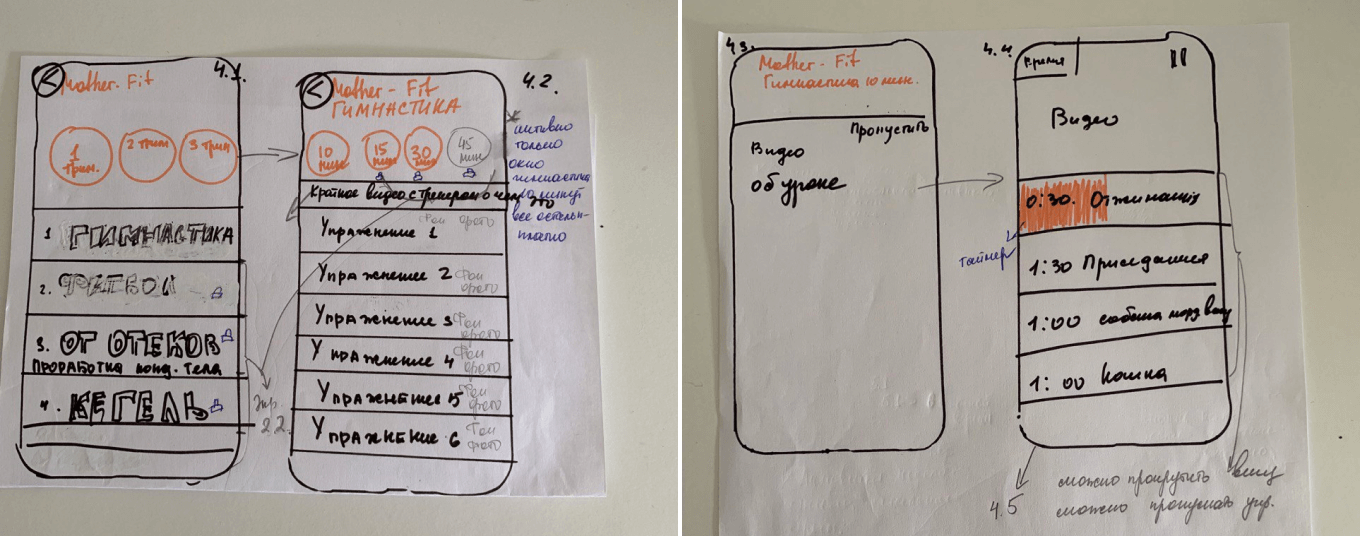 4.1.
Mather-Fit
1 трим.
2 трим
3 трим
1 ГИМНАСТИКА
2. ФИТБОЛ
3. ОТ ОТЕКОВ
ПРОРАБОТКА конд. тела
4. КЕГЕЛЬ
Экр.
2.2.
4.2.
Mather-Fit
ГИМНАСТИКА
10 мин
15 мин
30 мин
45 мин
Краткое видео с тренером о чем это
Упражнение 1
Фон фото
Упражнение 2
Фон фото
Упражнение 3
Фон фото
Упражнение 4
Фон фото
Упражнение 5
Фон фото
Упражнение 6
Фон фото
активно
только
окно
гимнастика
10 минут
все осталь-
платно
4.3.
Mather-Fit
Гимнастика 10 мин.
Пропустить
Видео
об уроке
4.4.
Время
Видео
0:30. Отжимания
таймер
1:30 Приседания
1:00 собака морд вниз
1:00 Кошка
4.5
можно прокрутить вниз
можно пропускать упр.